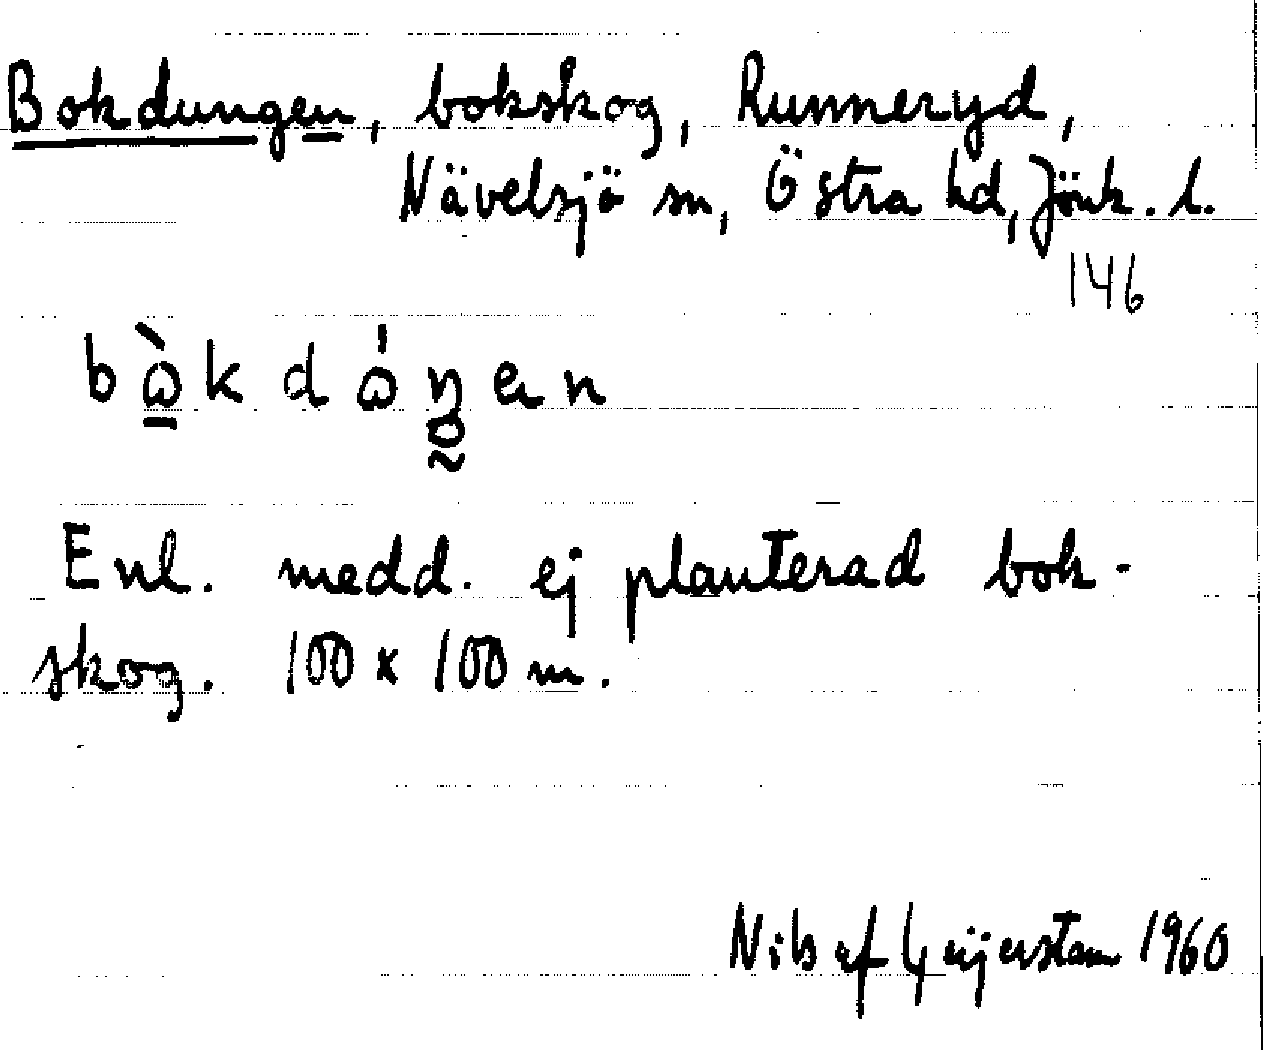 Bokdungen, bokskog, Runneryd,
Nävelsjö sn, Östra hd, Jönk. l.
146
Enl. medd. ej planterad bok-
skog. 100 x 100 m.
Nils af Geijerstam 1960